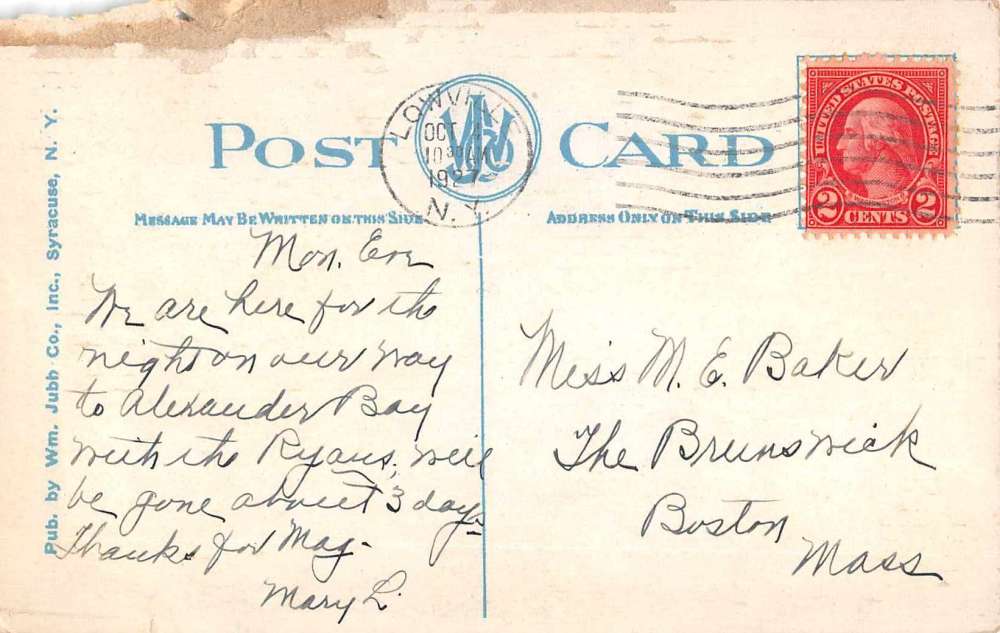 POST CARD
LOWVILLE
OCT
10 30 AM
1927
N.Y.
UNITED STATES POSTAGE
2 CENTS 2
MESSAGE MAY BE WRITTEN ON THIS SIDE
ADDRESS ONLY ON THIS SIDE
Pub. by Wm. Jubb Co., Inc., Syracuse, N. Y.
Mon. Eve
We are here for the
night on our way
to Alexander Bay
with the Ryans, will
be gone about 3 days
Thanks for Mag.
Mary L.
Miss M. E. Baker
The Brunswick
Boston
Mass